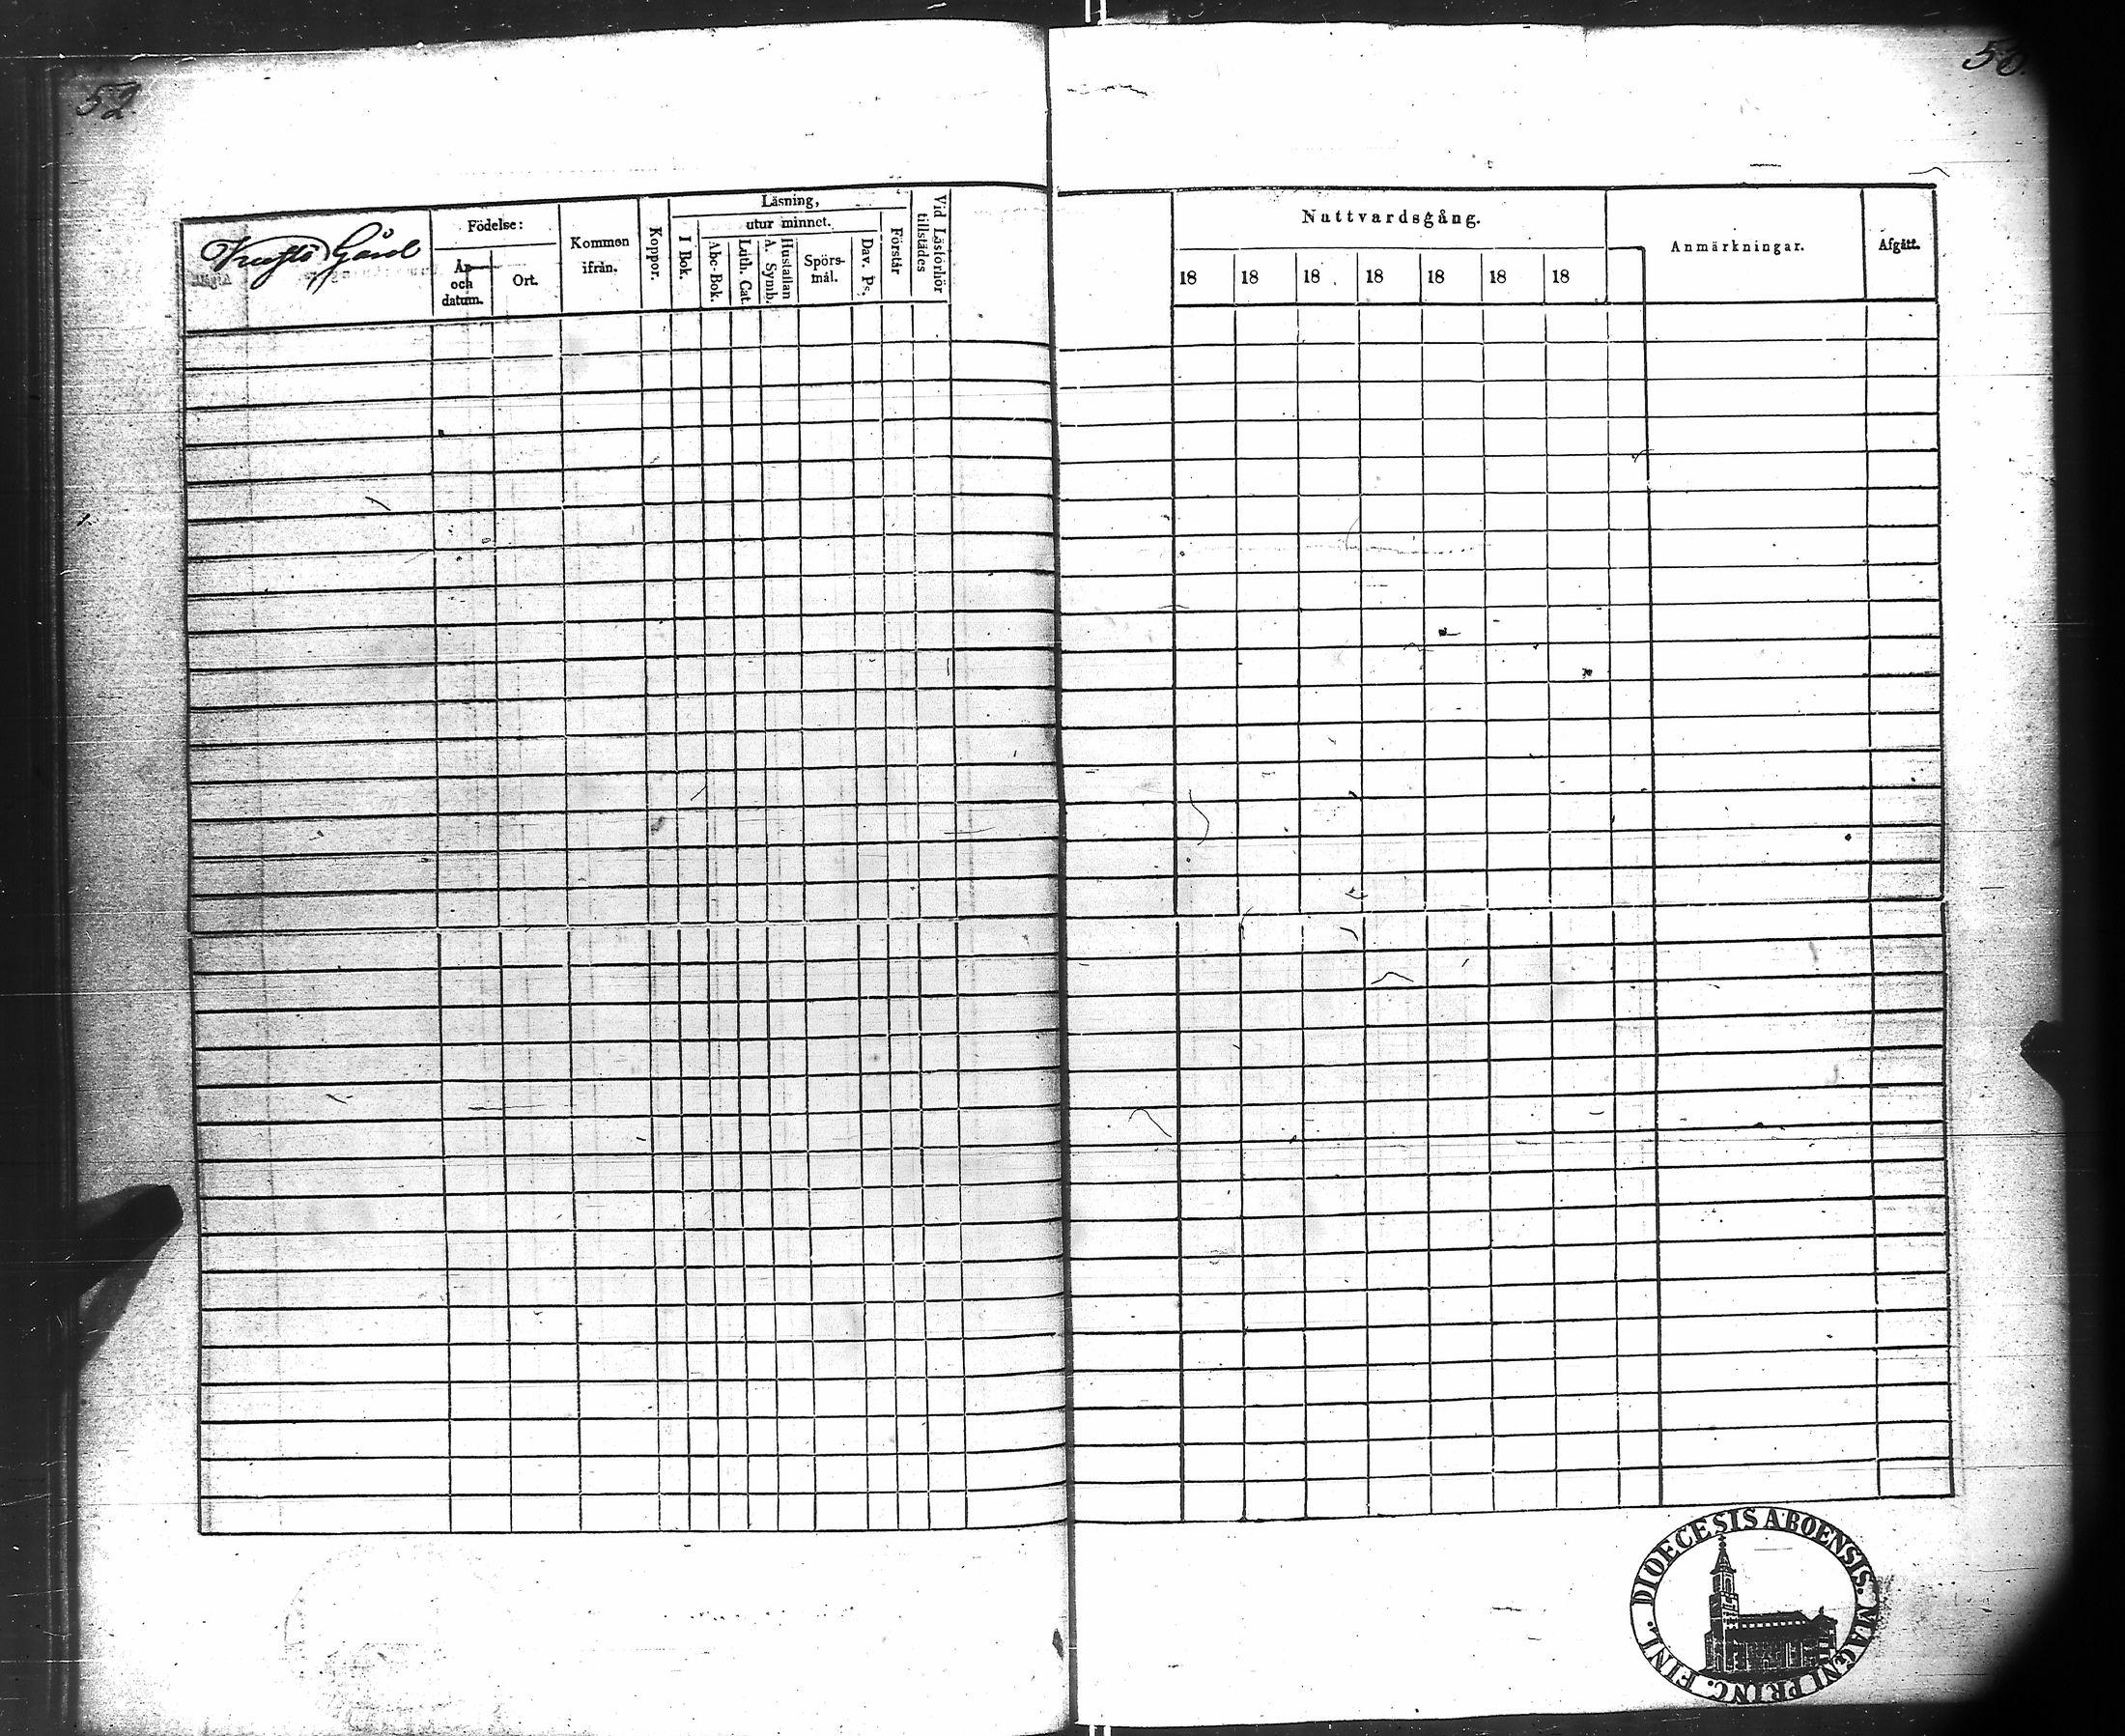 52.
Gård
Födelse:
År och datum.
Ort.
Kommen ifrån.
Koppor.
Läsning,
I Bok.
utur minnet.
Abc-Bok.
Luth. Cat.
A. Symb.
Hustaflan
Spörs-
mål.
Dav. Ps.
Förstår
Vid Läsförhör
tillstädes
Nattvardsgång.
18 18 18 18 18 18 18
Anmärkningar.
Afgått.
DIOECESIS ABOENSIS. MAGNI PRINC. FINL.